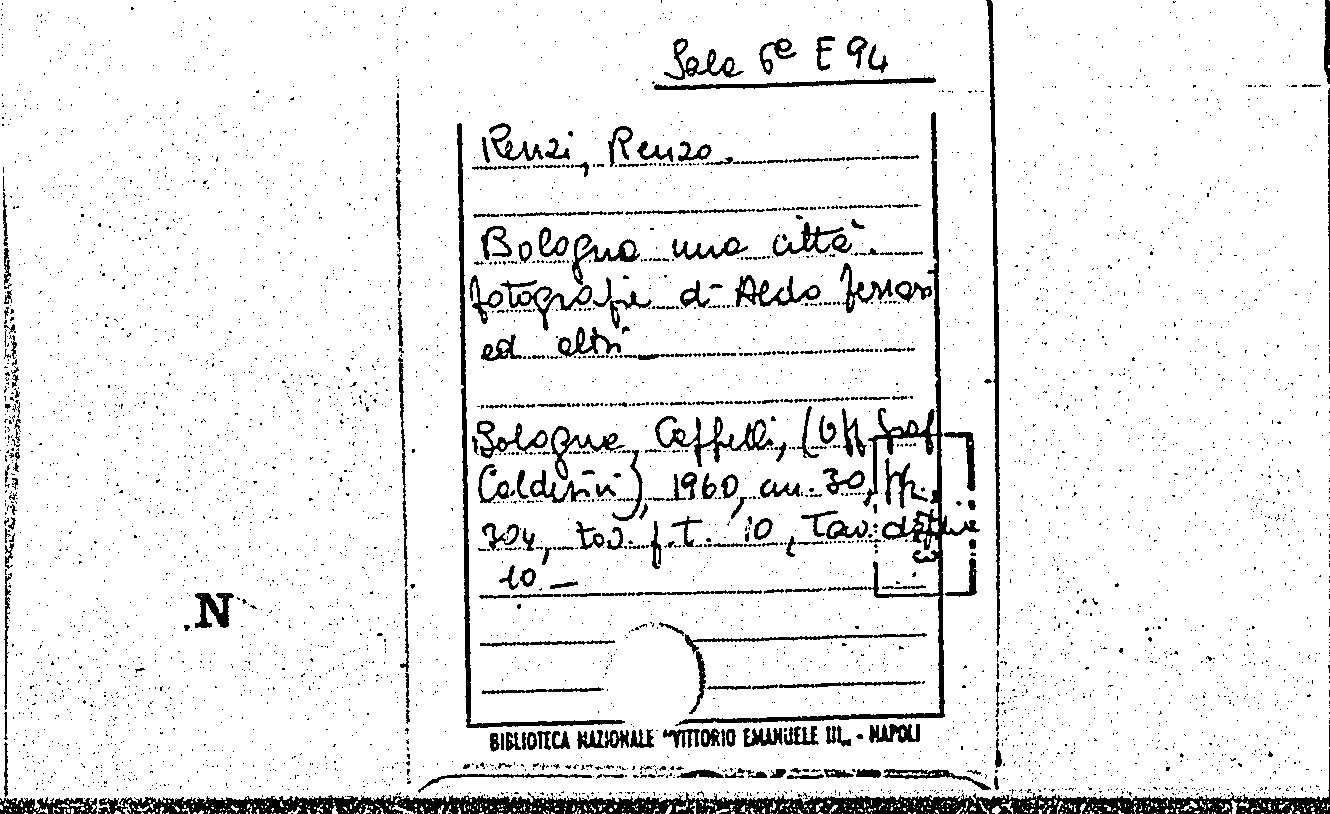 Sala 6ª E 94
Renzi, Renzo.
Bologna una città.
fotografie di Aldo Ferrari
ed altri
Bologna, Cappelli, (Off. Graf.
Calderini), 1960, cm. 30, pp.
304, tav. f.t. 10, Tav. doppie
10 —
N
BIBLIOTECA NAZIONALE "VITTORIO EMANUELE III" - NAPOLI